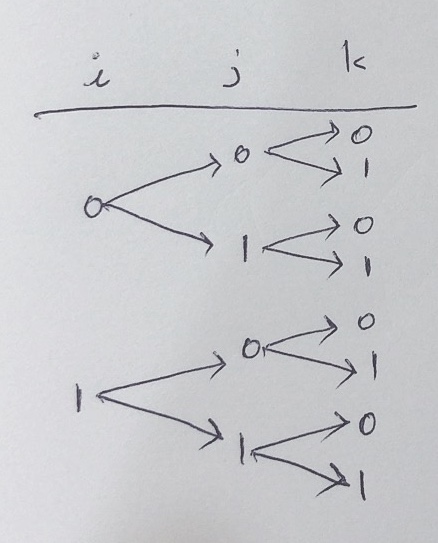 i j k
0 0 0
1
1 0
1
1 0 0
1
1 0
1